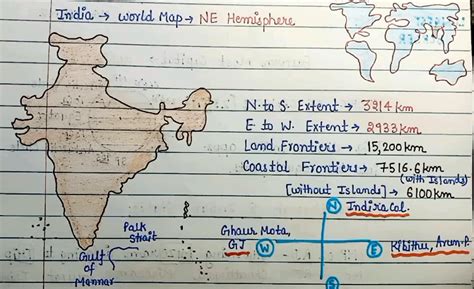 India → World Map → NE Hemisphere
N. to S. Extent → 3214 km
E. to W. Extent → 2933 km
Land Frontiers → 15,200 km
Coastal Frontiers → 7516.6 km
(with Islands)
[without Islands] → 6100 km
N Indira Col.
Palk
Strait
Gulf
of
Mannar
Ghaur Mota,
GJ
W
E
Kibithu, Arun. P.
S